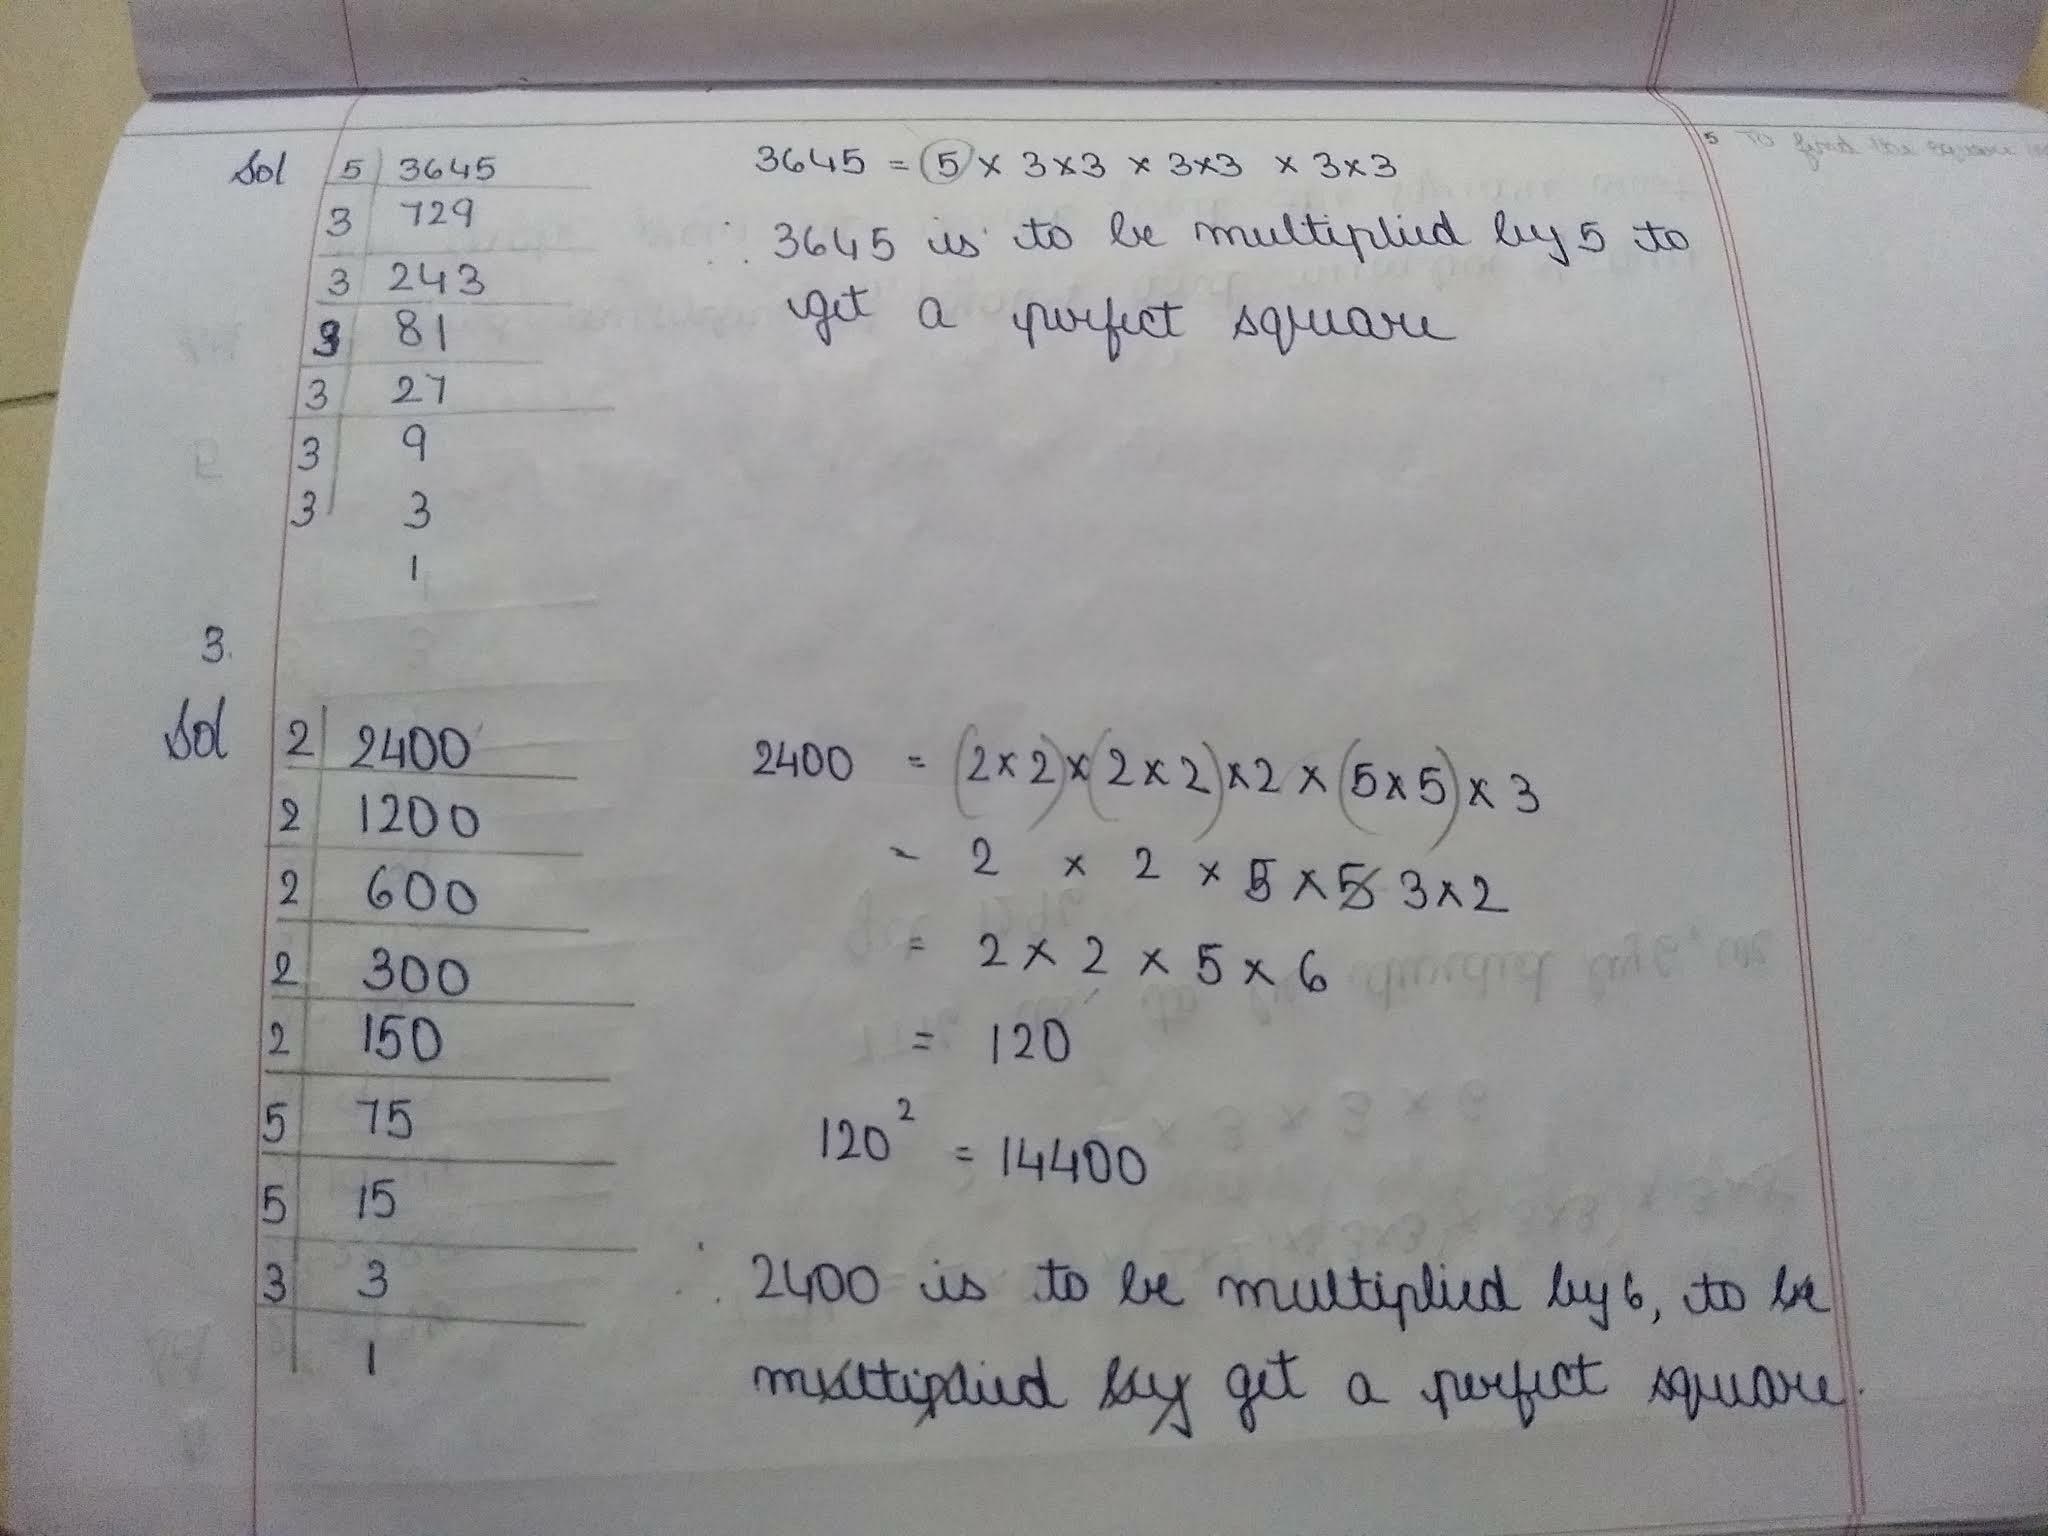 Sol
5 3645
3 729
3 243
3 81
3 27
3 9
3 3
1
3645 = 5 × 3×3 × 3×3 × 3×3
∴ 3645 is to be multiplied by 5 to
get a perfect square
5 To find the square
3.
Sol
2 2400
2 1200
2 600
2 300
2 150
5 75
5 15
3 3
1
2400 = (2×2)×(2×2)×2×(5×5)×3
= 2 × 2 × 5 × 5 3×2
= 2 × 2 × 5 × 6
= 120
120² = 14400
∴ 2400 is to be multiplied by 6, to be
multiplied by get a perfect square.